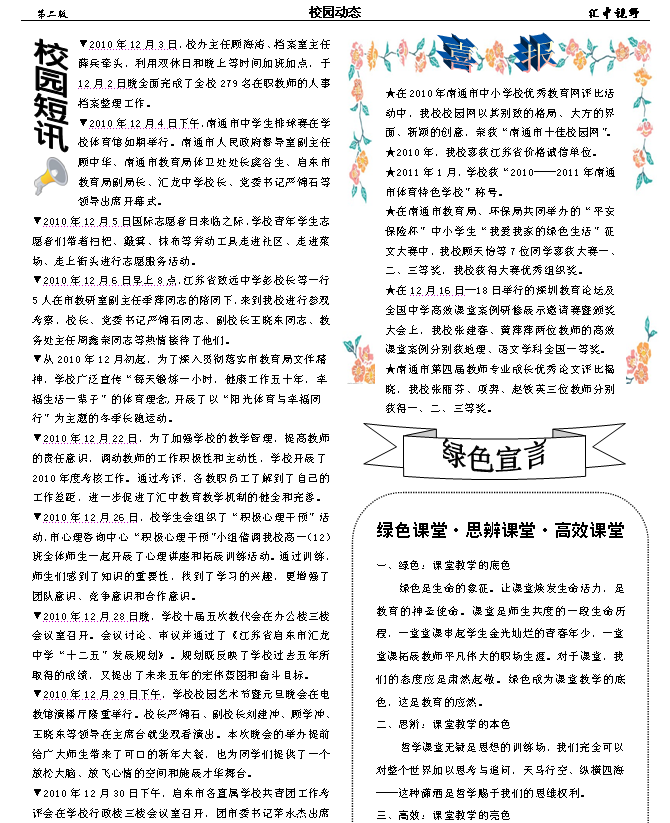 第二版
校园动态
汇中视野
校园短讯
▼2010年12月3日,校办主任顾海涛、档案室主任
薛兵牵头,利用双休日和晚上等时间加班加点,于
12月2日晚全面完成了全校279名在职教师的人事
档案整理工作。
▼2010年12月4日下午,南通市中学生排球赛在学
校体育馆如期举行。南通市人民政府督导室副主任
顾中华、南通市教育局体卫处处长虞谷生、启东市
教育局副局长、汇龙中学校长、党委书记严锦石等
领导出席开幕式。
▼2010年12月5日国际志愿者日来临之际,学校青年学生志
愿者们带着扫把、簸箕、抹布等劳动工具走进社区、走进菜
场、走上街头进行志愿服务活动。
▼2010年12月6日早上8点,江苏省致远中学彭校长等一行
5人在市教研室副主任季萍同志的陪同下,来到我校进行参观
考察,校长、党委书记严锦石同志、副校长王晓东同志、教
务处主任周鑫荣同志等热情接待了他们。
▼从2010年12月初起,为了深入贯彻落实市教育局文件精
神,学校广泛宣传“每天锻炼一小时,健康工作五十年,幸
福生活一辈子”的体育理念,开展了以“阳光体育与幸福同
行”为主题的冬季长跑运动。
▼2010年12月22日,为了加强学校的教学管理,提高教师
的责任意识,调动教师的工作积极性和主动性,学校开展了
2010年度考核工作。通过考评,各教职员工了解到了自己的
工作差距,进一步促进了汇中教育教学机制的健全和完善。
▼2010年12月26日,校学生会组织了“积极心理干预”活
动,市心理咨询中心“积极心理干预”小组借调我校高一(12)
班全体师生一起开展了心理讲座和拓展训练活动。通过训练,
师生们感到了知识的重要性,找到了学习的兴趣,更增强了
团队意识、竞争意识和合作意识。
▼2010年12月28日晚,学校十届五次教代会在办公楼三楼
会议室召开。会议讨论、审议并通过了《江苏省启东市汇龙
中学“十二五”发展规划》。规划既反映了学校过去五年所
取得的成绩,又提出了未来五年的宏伟蓝图和奋斗目标。
▼2010年12月29日下午,学校校园艺术节暨元旦晚会在电
教馆演播厅隆重举行。校长严锦石、副校长刘建冲、顾学冲、
王晓东等领导在主席台就坐观看演出。本次晚会的举办提前
给广大师生带来了可口的新年大餐,也为同学们提供了一个
放松大脑、放飞心情的空间和施展才华舞台。
▼2010年12月30日下午,启东市各直属学校共青团工作考
评会在学校行政楼三楼会议室召开,团市委书记茅永杰出席
喜 报
★在2010年南通市中小学校优秀教育网评比活
动中,我校校园网以其别致的格局、大方的界
面、新颖的创意,荣获“南通市十佳校园网”。
★2010年,我校喜获江苏省价格诚信单位。
★2011年1月,学校获“2010——2011年南通
市体育特色学校”称号。
★在南通市教育局、环保局共同举办的“平安
保险杯”中小学生“我爱我家的绿色生活”征
文大赛中,我校顾天怡等7位同学喜获大赛一、
二、三等奖,我校获得大赛优秀组织奖。
★在12月16日—18日举行的深圳教育论坛及
全国中学高效课堂案例研修展示邀请赛暨颁奖
大会上,我校张建春、黄萍萍两位教师的高效
课堂案例分别获地理、语文学科全国一等奖。
★南通市第四届教师专业成长优秀论文评比揭
晓,我校张丽芬、项羿、赵铁英三位教师分别
获得一、二、三等奖。
绿色宣言
绿色课堂·思辨课堂·高效课堂
一、绿色:课堂教学的底色
绿色是生命的象征。让课堂焕发生命活力,是
教育的神圣使命。课堂是师生共度的一段生命历
程,一堂堂课串起学生金光灿烂的青春年少,一堂
堂课拓展教师平凡伟大的职场生涯。对于课堂,我
们的态度应是肃然起敬。绿色成为课堂教学的底
色,这是教育的应然。
二、思辨:课堂教学的本色
哲学课堂无疑是思想的训练场,我们完全可以
对整个世界加以思考与追问,天马行空、纵横四海
——这种潇洒是哲学赐予我们的思维权利。
三、高效:课堂教学的亮色